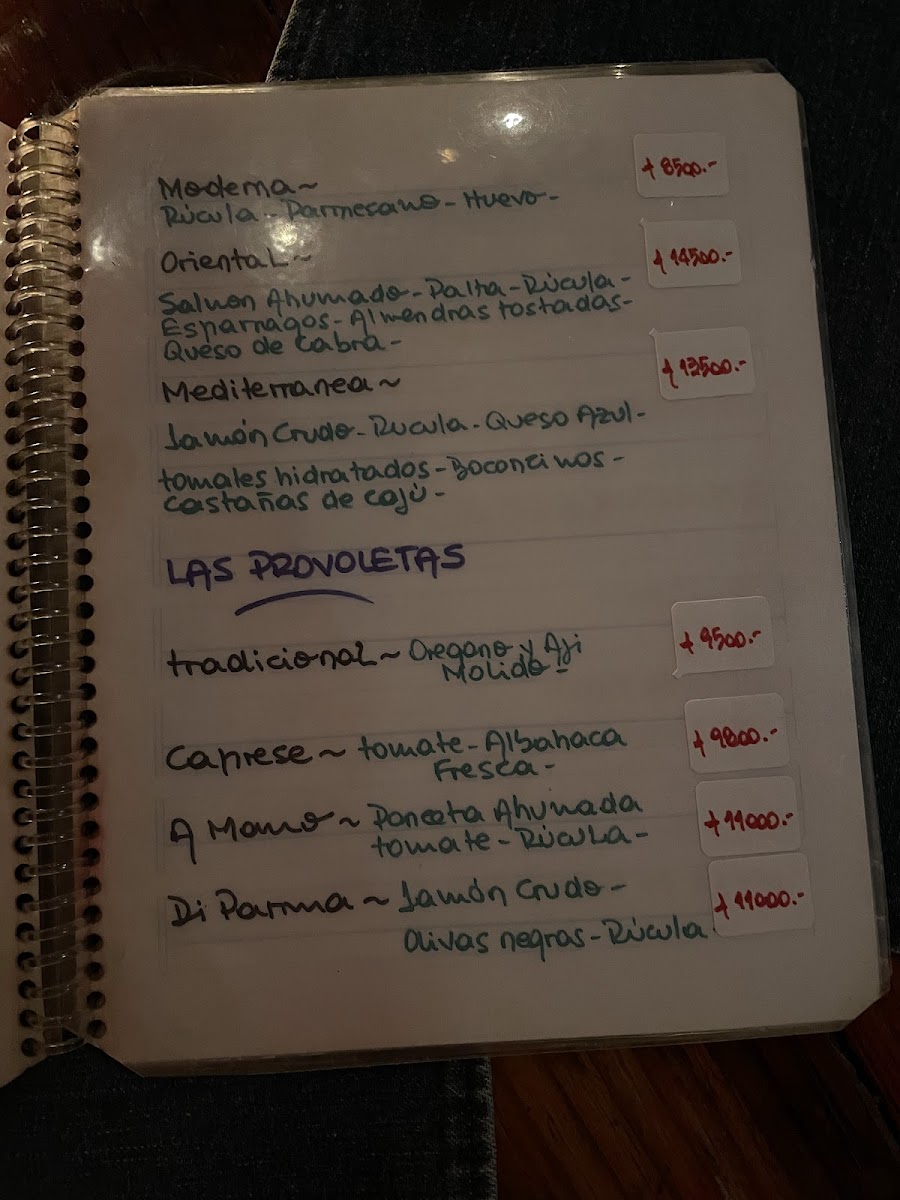 Modena~ $8500.-
Rúcula - Parmesano - Huevo -
Oriental~ $14500.-
Salmon Ahumado - Palta - Rúcula -
Esparragos - Almendras tostadas -
Queso de Cabra -
Mediterranea~ $13500.-
Jamón Crudo - Rucula - Queso Azul -
tomates hidratados - Boconcinos -
castañas de cajú -
LAS PROVOLETAS
tradicional~ Oregano y Aji $9500.-
Molido -
Caprese~ tomate - Albahaca $9800.-
Fresca -
A Mano~ Panceta Ahumada $11000.-
tomate - Rúcula -
Di Parma~ Jamón Crudo - $11000.-
Olivas negras - Rúcula